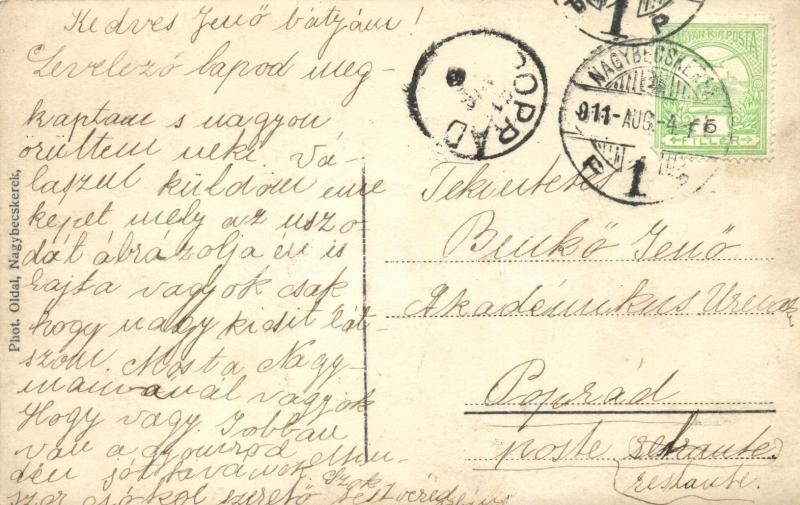 Kedves Jenő bátyám!
Levelező lapod meg-
kaptam s nagyon
örültem neki. Vá-
laszul küldöm eme
képet mely az uszo-
dát ábrázolja én is
rajta vagyok csak
hogy nagy kicsit lát-
szom. Most a Nagy-
mamánál vagyok
Hogy vagy. Jobban
van a gyomrod
sokszor csókol szerető testvéred
Phot. Oldal, Nagybecskerek.
POPRÁD
NAGYBECSKEREK
911-AUG.-4
1
1
MAGYAR KIR. POSTA
5
FILLER
Tekintetes
Benkő Jenő
Akadémikus Urnak
Poprád
poste restante.
restante.